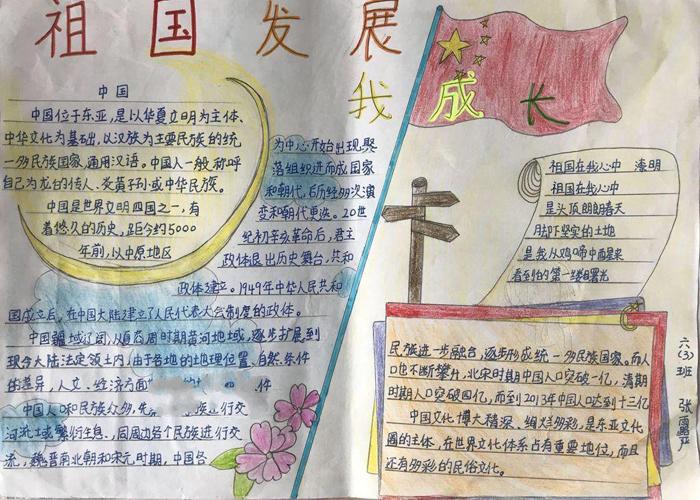 祖国发展
我成长
中国
中国位于东亚,是以华夏文明为主体、
中华文化为基础,以汉族为主要民族的统
一多民族国家,通用汉语。中国人一般称呼
自己为龙的传人、炎黄子孙或中华民族。
中国是世界文明四国之一,有
着悠久的历史,距今约5000
年前,以中原地区
为中心开始出现聚
落组织进而成国家
和朝代,后历经多次演
变和朝代更迭。20世
纪初辛亥革命后,君主
政体退出历史舞台,共和
政体建立。1949年中华人民共和
国成立后,在中国大陆建立了人民代表大会制度的政体。
中国疆域辽阔,从 周时期黄河地域,逐步扩展到
现今大陆法定领土内,由于各地的地理位置、自然条件
的差异,人文、经济方面 件
中国人口和民族众多,先 族 行交
河流域繁衍生息、同周边各个民族进行交
流,魏晋南北朝和宋元时期,中国各
祖国在我心中 海明
祖国在我心中
是头顶朗朗春天
脚下坚实的土地
是我从鸡啼中 来
看到的第一缕曙光
民族进一步融合,逐步形成统一多民族国家。而人
口也不断攀升,北宋时期中国人口突破一亿,清期
时期人口突破四亿,而到2013年中国人口达到十三亿
中国文化博大精深、绚烂多彩,是东亚文化
圈的主体,在世界文化体系占有重要地位,而且
还有多彩的民俗文化。
六(3)班 张